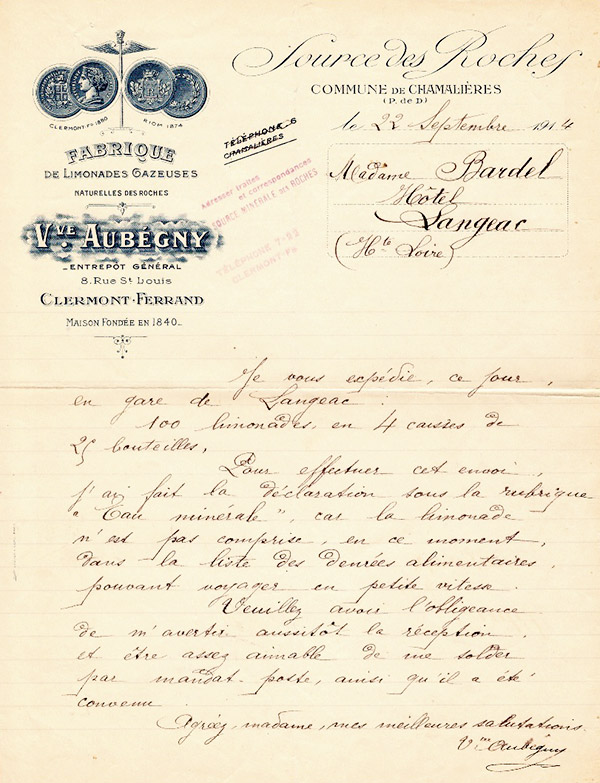 Source des Roches
COMMUNE DE CHAMALIÈRES
(P. de D)
CLERMONT-Fd 1880
RIOM 1874
TÉLÉPHONE 6
CHAMALIÈRES
le 22 Septembre 1914
FABRIQUE
DE LIMONADES GAZEUSES
NATURELLES DES ROCHES
Adresser traites
et correspondances
SOURCE MINÉRALE des ROCHES
TÉLÉPHONE 7-62
CLERMONT-Fd
Madame Bardel
Hôtel
Langeac
(Hte Loire)
Vve AUBÉGNY
ENTREPÔT GÉNÉRAL
8. Rue St Louis
CLERMONT-FERRAND
MAISON FONDÉE EN 1840
Je vous expédie, ce jour,
en gare de Langeac :
100 limonades, en 4 caisses de
25 bouteilles,
Pour effectuer cet envoi,
j'ai fait la déclaration sous la rubrique
"Eau minérale", car la limonade
n'est pas comprise, en ce moment,
dans la liste des denrées alimentaires,
pouvant voyager en petite vitesse.
Veuillez avoir l'obligeance
de m'avertir aussitôt la réception,
et être assez aimable de me solder
par mandat-poste, ainsi qu'il a été
convenu.
Agréez, madame, mes meilleures salutations.
Vve Aubégny